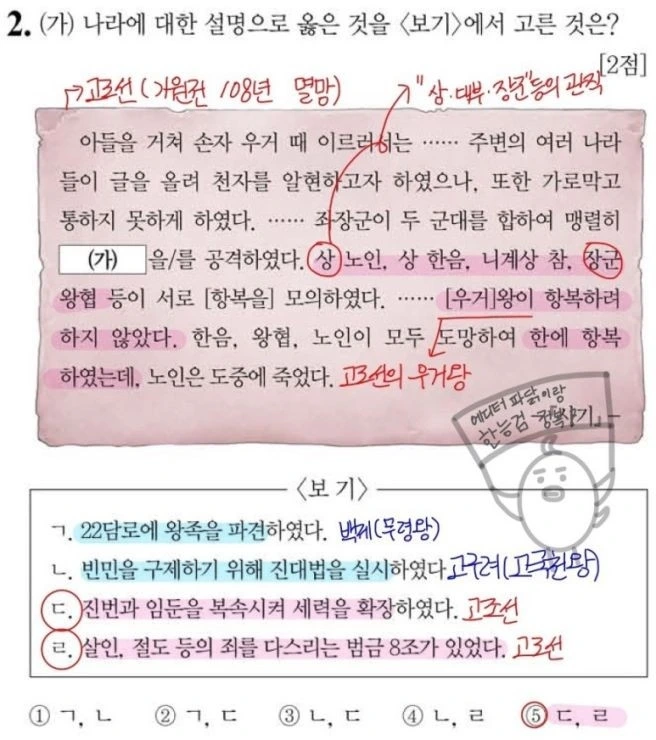 2. (가) 나라에 대한 설명으로 옳은 것을 <보기>에서 고른 것은?
[2점]
→고조선(기원전 108년 멸망)
"상·대부·장군"등의 관직
아들을 거쳐 손자 우거 때 이르러서는 …… 주변의 여러 나라
들이 글을 올려 천자를 알현하고자 하였으나, 또한 가로막고
통하지 못하게 하였다. …… 좌장군이 두 군대를 합하여 맹렬히
(가) 을/를 공격하였다. 상 노인, 상 한음, 니계상 참, 장군
왕협 등이 서로 [항복을] 모의하였다. …… [우거]왕이 항복하려
하지 않았다. 한음, 왕협, 노인이 모두 도망하여 한에 항복
하였는데, 노인은 도중에 죽었다. 고조선의 우거왕
에디터 파닭이랑
한능검 정복
사기』-
<보 기>
ㄱ. 22담로에 왕족을 파견하였다. 백제(무령왕)
ㄴ. 빈민을 구제하기 위해 진대법을 실시하였다. 고구려(고국천왕)
ㄷ. 진번과 임둔을 복속시켜 세력을 확장하였다. 고조선
ㄹ. 살인, 절도 등의 죄를 다스리는 범금 8조가 있었다. 고조선
① ㄱ, ㄴ ② ㄱ, ㄷ ③ ㄴ, ㄷ ④ ㄴ, ㄹ ⑤ ㄷ, ㄹ